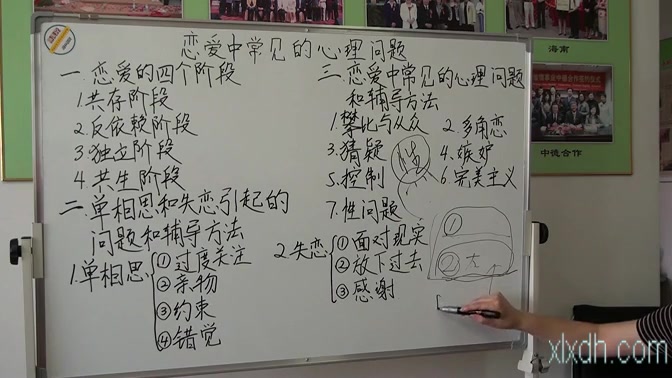 恋爱中常见的心理问题
一.恋爱的四个阶段
1.共存阶段
2.反依赖阶段
3.独立阶段
4.共生阶段
二.单相思和失恋引起的
问题和辅导方法
1.单相思
①过度关注
②亲物
③约束
④错觉
2.失恋
①面对现实
②放下过去
③感谢
三.恋爱中常见的心理问题
和辅导方法
1.攀比与从众 2.多角恋
3.猜疑 4.嫉妒
5.控制 6.完美主义
7.性问题
①
②大
海南
中德合作
xlxdh.com